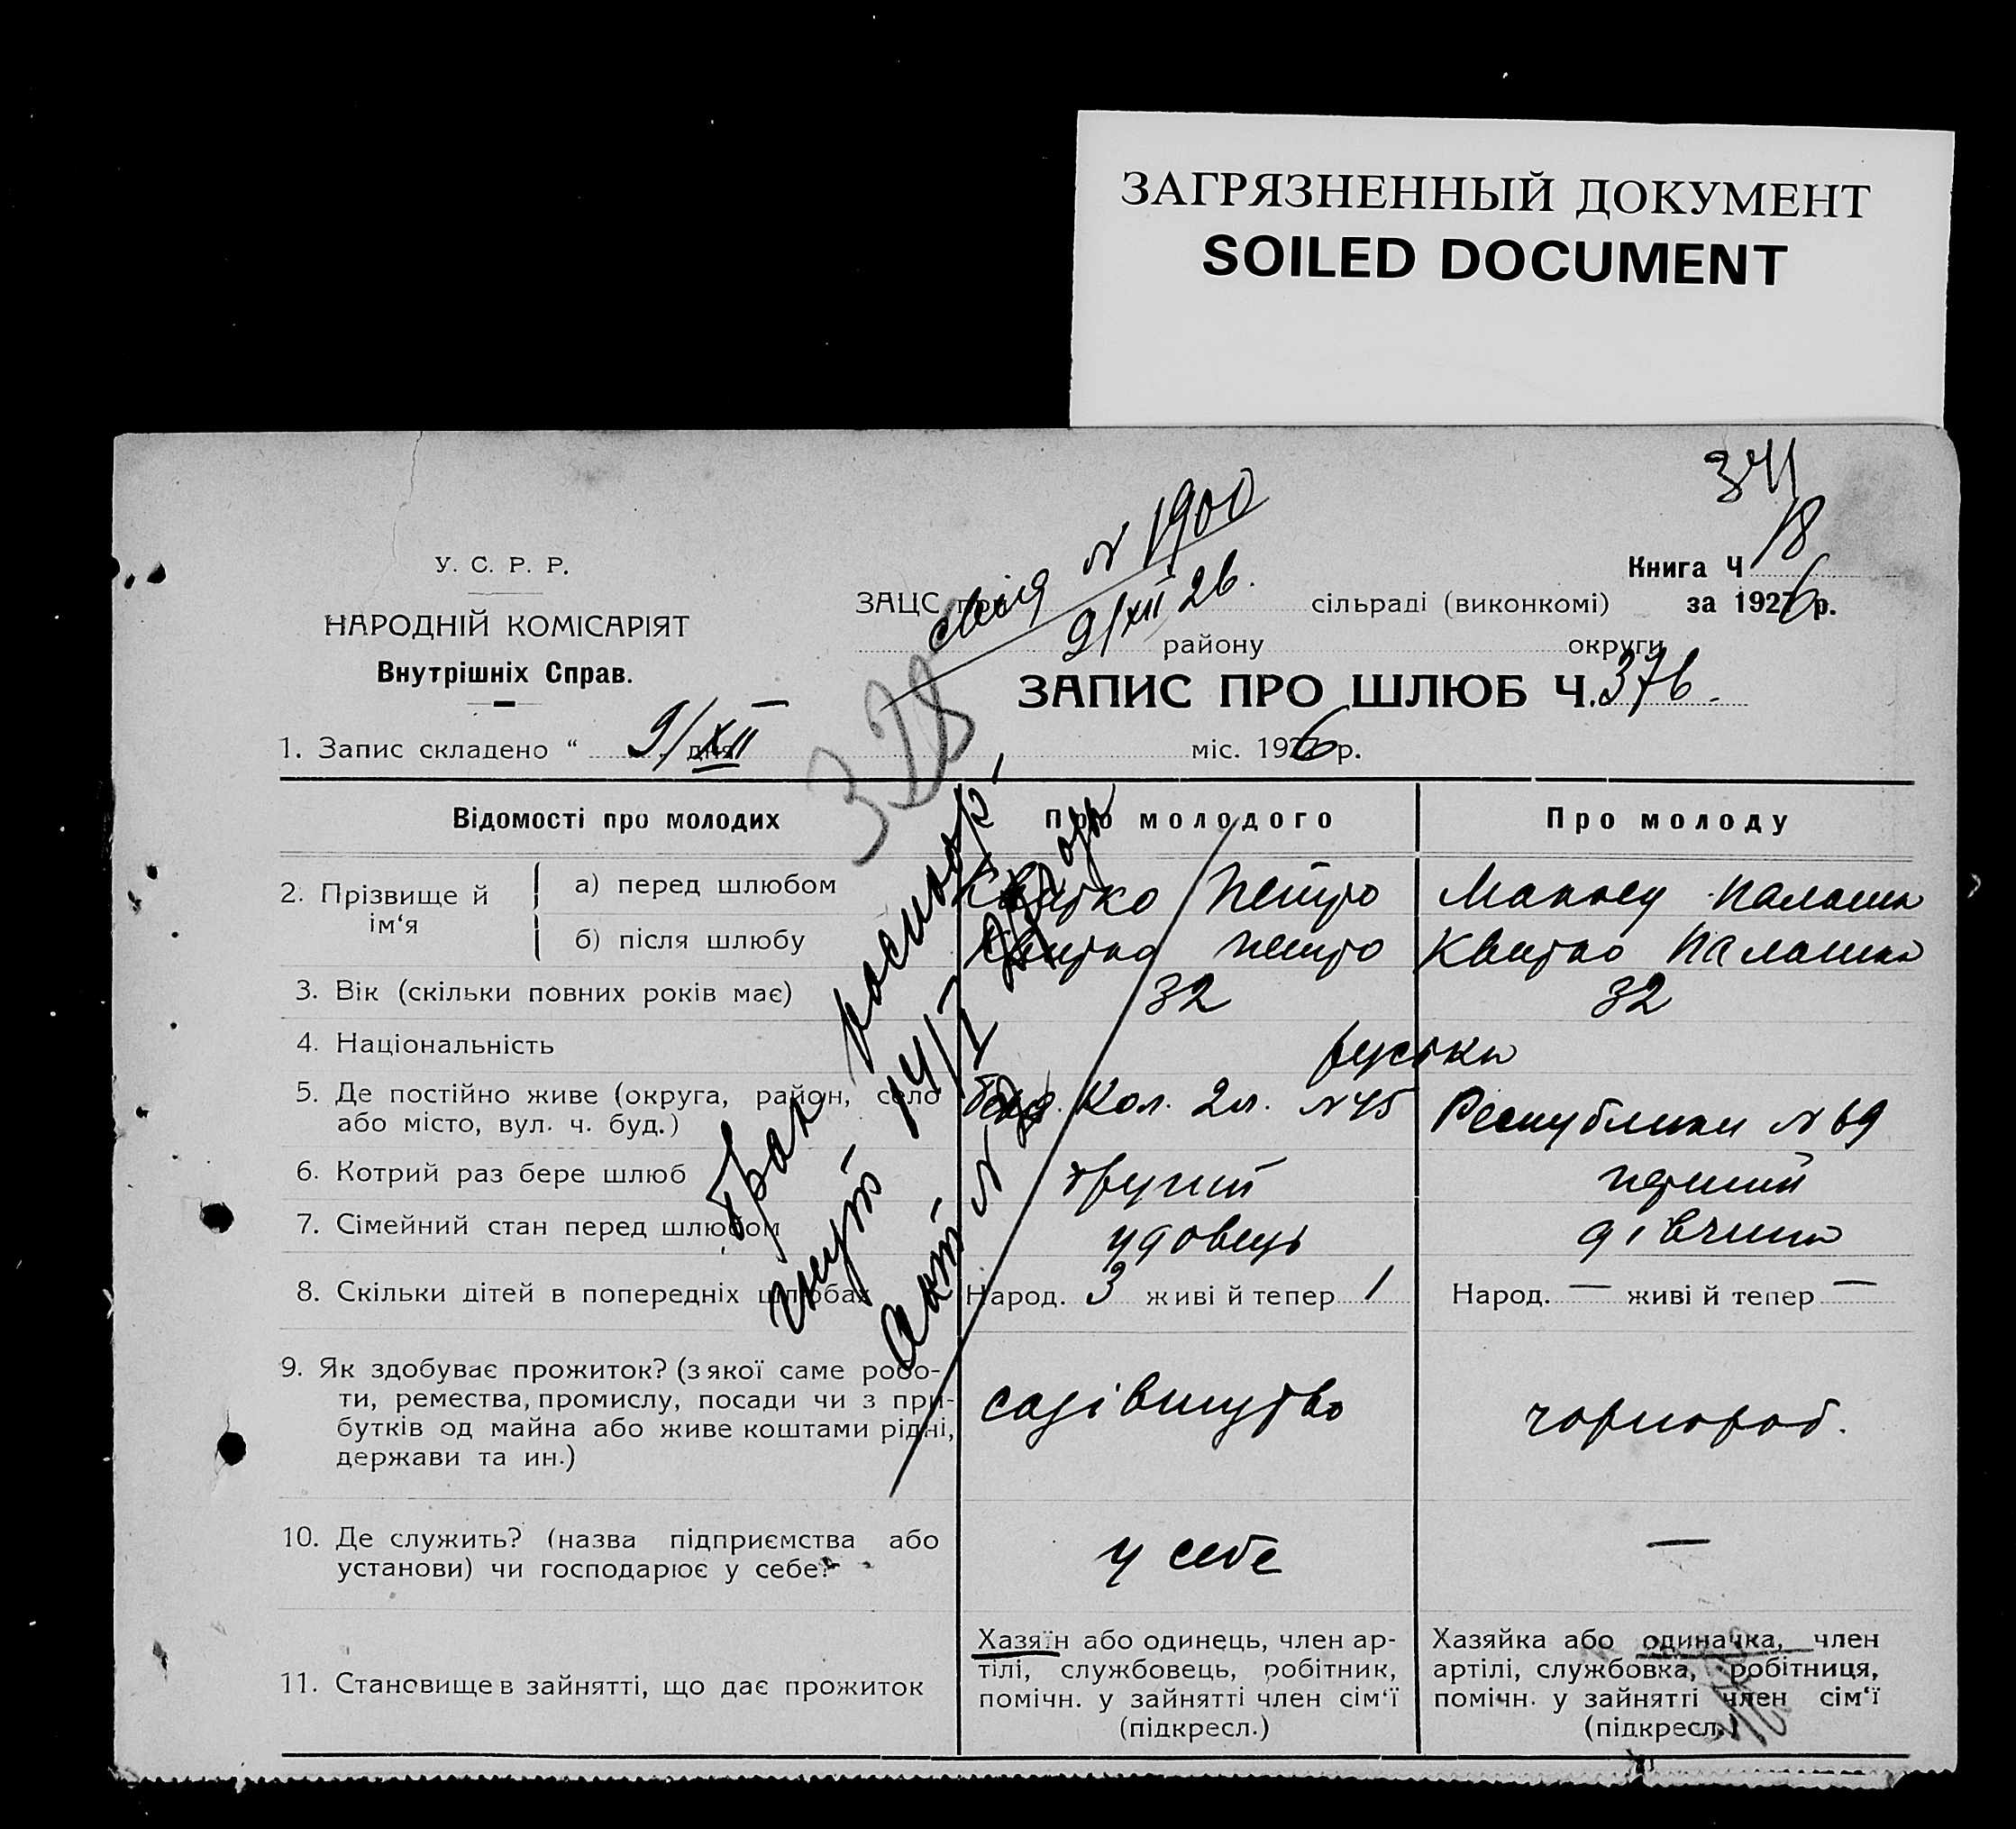 ЗАГРЯЗНЕННЫЙ ДОКУМЕНТ
SOILED DOCUMENT
341
У. С. Р. Р.
НАРОДНІЙ КОМІСАРІЯТ
Внутрішніх Справ.
N 1900
9/XII 26.
Книга Ч 18
ЗАЦС при сільраді (виконкомі) за 1926 р.
району округи
328
ЗАПИС ПРО ШЛЮБ Ч. 376.
1. Запис складено “ 9/XII дня міс. 1926 р.
Відомості про молодих Про молодого Про молоду
2. Прізвище й ім‘я
а) перед шлюбом Квитко Петро Палашка
б) після шлюбу Квитко Петро Квитко Палашка
3. Вік (скільки повних років має) 32 32
4. Національність
5. Де постійно живе (округа, район, село Кол. 2л. N 45 Республики N 69
або місто, вул. ч. буд.)
6. Котрий раз бере шлюб другий перший
7. Сімейний стан перед шлюбом удовець дівчина
8. Скільки дітей в попередніх шлюбах Народ. 3 живі й тепер 1 Народ. — живі й тепер —
9. Як здобуває прожиток? (з якої саме робо-
ти, ремества, промислу, посади чи з при-
бутків од майна або живе коштами рідні,
держави та ин.)
садівництво чорнороб.
10. Де служить? (назва підприємства або
установи) чи господарює у себе?
у себе —
11. Становище в зайнятті, що дає прожиток
Хазяїн або одинець, член ар-
тілі, службовець, робітник,
помічн. у зайнятті член сім‘ї
(підкресл.)
Хазяйка або одиначка, член
артілі, службовка, робітниця,
помічн. у зайнятті член сім‘ї
(підкресл.)
Брак расторг
нут 14/I
акт N